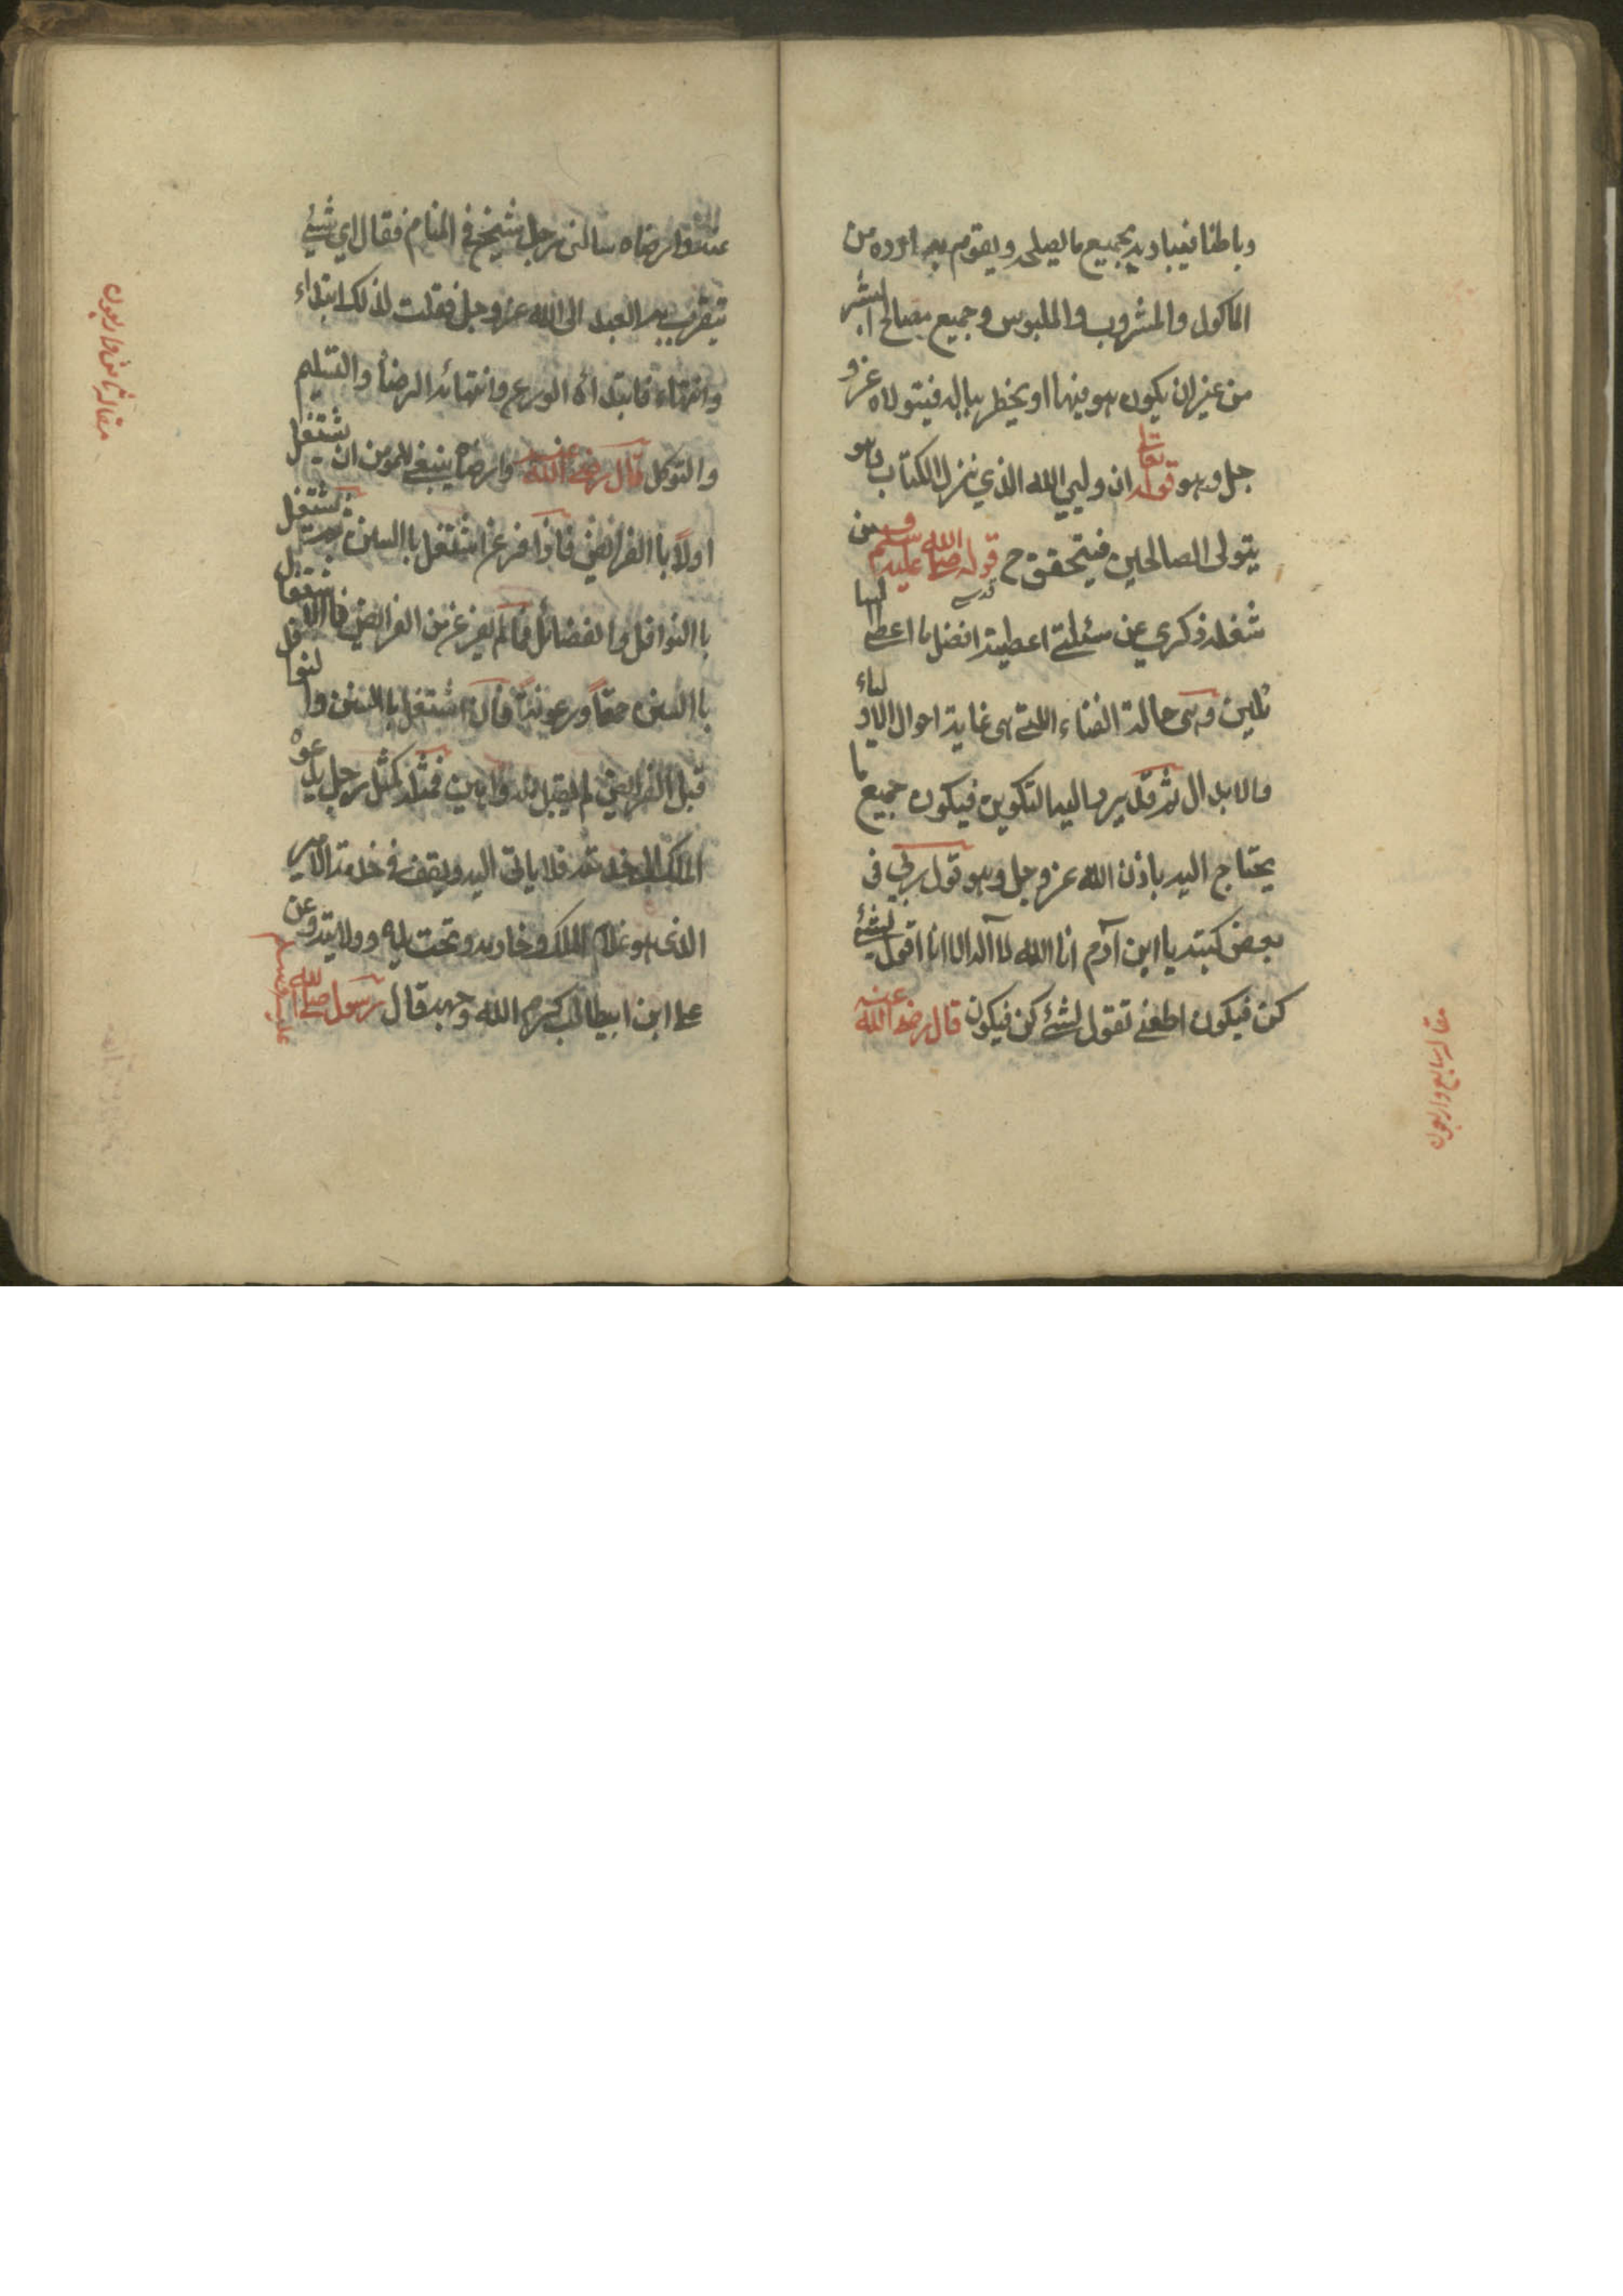 وباطنا فيباديه بجميع ما يصلحه ويقوم به اوده من
الماكول والمشروب والملبوس وجميع مصالح البشر
من غير ان يكون هو فيها او يخطر بباله فيتولاه عز و
جل وهو قوله تعالى ان وليي الله الذي نزل الكتاب وهو
يتولى الصالحين فيتحقق ح قوله صلى الله عليه وسلم من
شغله ذكري عن مسئلتي اعطيته افضل ما اعطي السا
ئلين وهى حالة الفناء اللتي هى غاية احوال الاولياء
والابدال ثم قد يرد اليه التكوين فيكون جميع ما
يحتاج اليه باذن الله عز وجل وهو قوله في
بعض كتبه يا ابن آدم انا الله لا آله الا انا اقول لشئ
كن فيكون اطعني تقول لشئ كن فيكون قال رضى الله عنه
مقاله سابع واربعون
عنه وارضاه سالنى رجل شيخ في المنام فقال اي شئ
يتقرب به العبد الى الله عز وجل فقلت لذلك ابتداء
وانتهاء فابتداؤه الورع وانتهائه الرضأ والتسليم
والتوكل قال رضى الله عنه وارضاه ينبغي للمومن ان يشتغل
اولاً باالفرائض فاذا فرغ اشتغل باالسنن ثم يشتغل
باالنوافل والفضائل فما لم يفرغ من الفرائض فاالاشتغال
باالسنن حمقاً ورعونةً فان اشتغل باالسنن والنوافل
قبل الفرائض لم يقبل منه واهين فمثله كمثل رجل يدعوه
الملك الى خدمته فلا ياتى اليه ويقف في خدمة الامير
الذى هو غلام الملك وخادمه وتحت يده وولايته وعن
على ابن ابيطالب كرم الله وجهه قال رسول صلى الله
عليه وسلم
مقاله ثامن واربعون